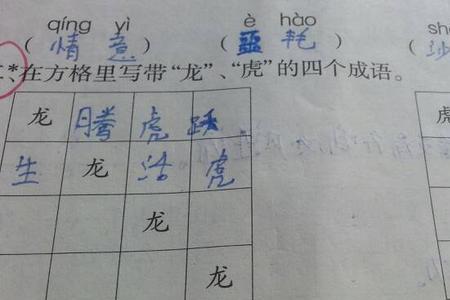 qíng yì è hào sh
(情意) (噩耗) (沙
*、在方格里写带“龙”、“虎”的四个成语。
龙腾虎跃 虎
生龙活虎
龙
龙